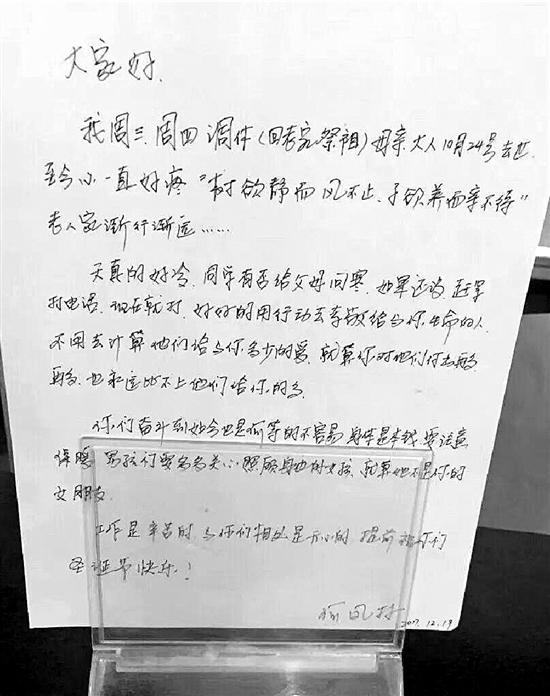 大家好.
我周三、周四调休(回老家祭祖)母亲大人10月24号去世.
至今心一直好疼"树欲静而风不止.子欲养而亲不待"
老人家渐行渐远……
天真的好冷.同学有否给父母问寒.如果还没.赶早
打电话.现在就打.好好的用行动去孝敬给与你生命的人.
不用去计算他们给与你多少的爱.就算你对他们付出再多
再多.也永远比不上他们给你的多.
你们奋斗到如今也是何等的不容易.身体是本钱.要注意
保暖.男孩们要多多关心照顾身边的女孩.就算她不是你的
女朋友.
工作是辛苦的.与你们相处是开心的.提前祝你们
圣诞节快乐!
2017.12.19